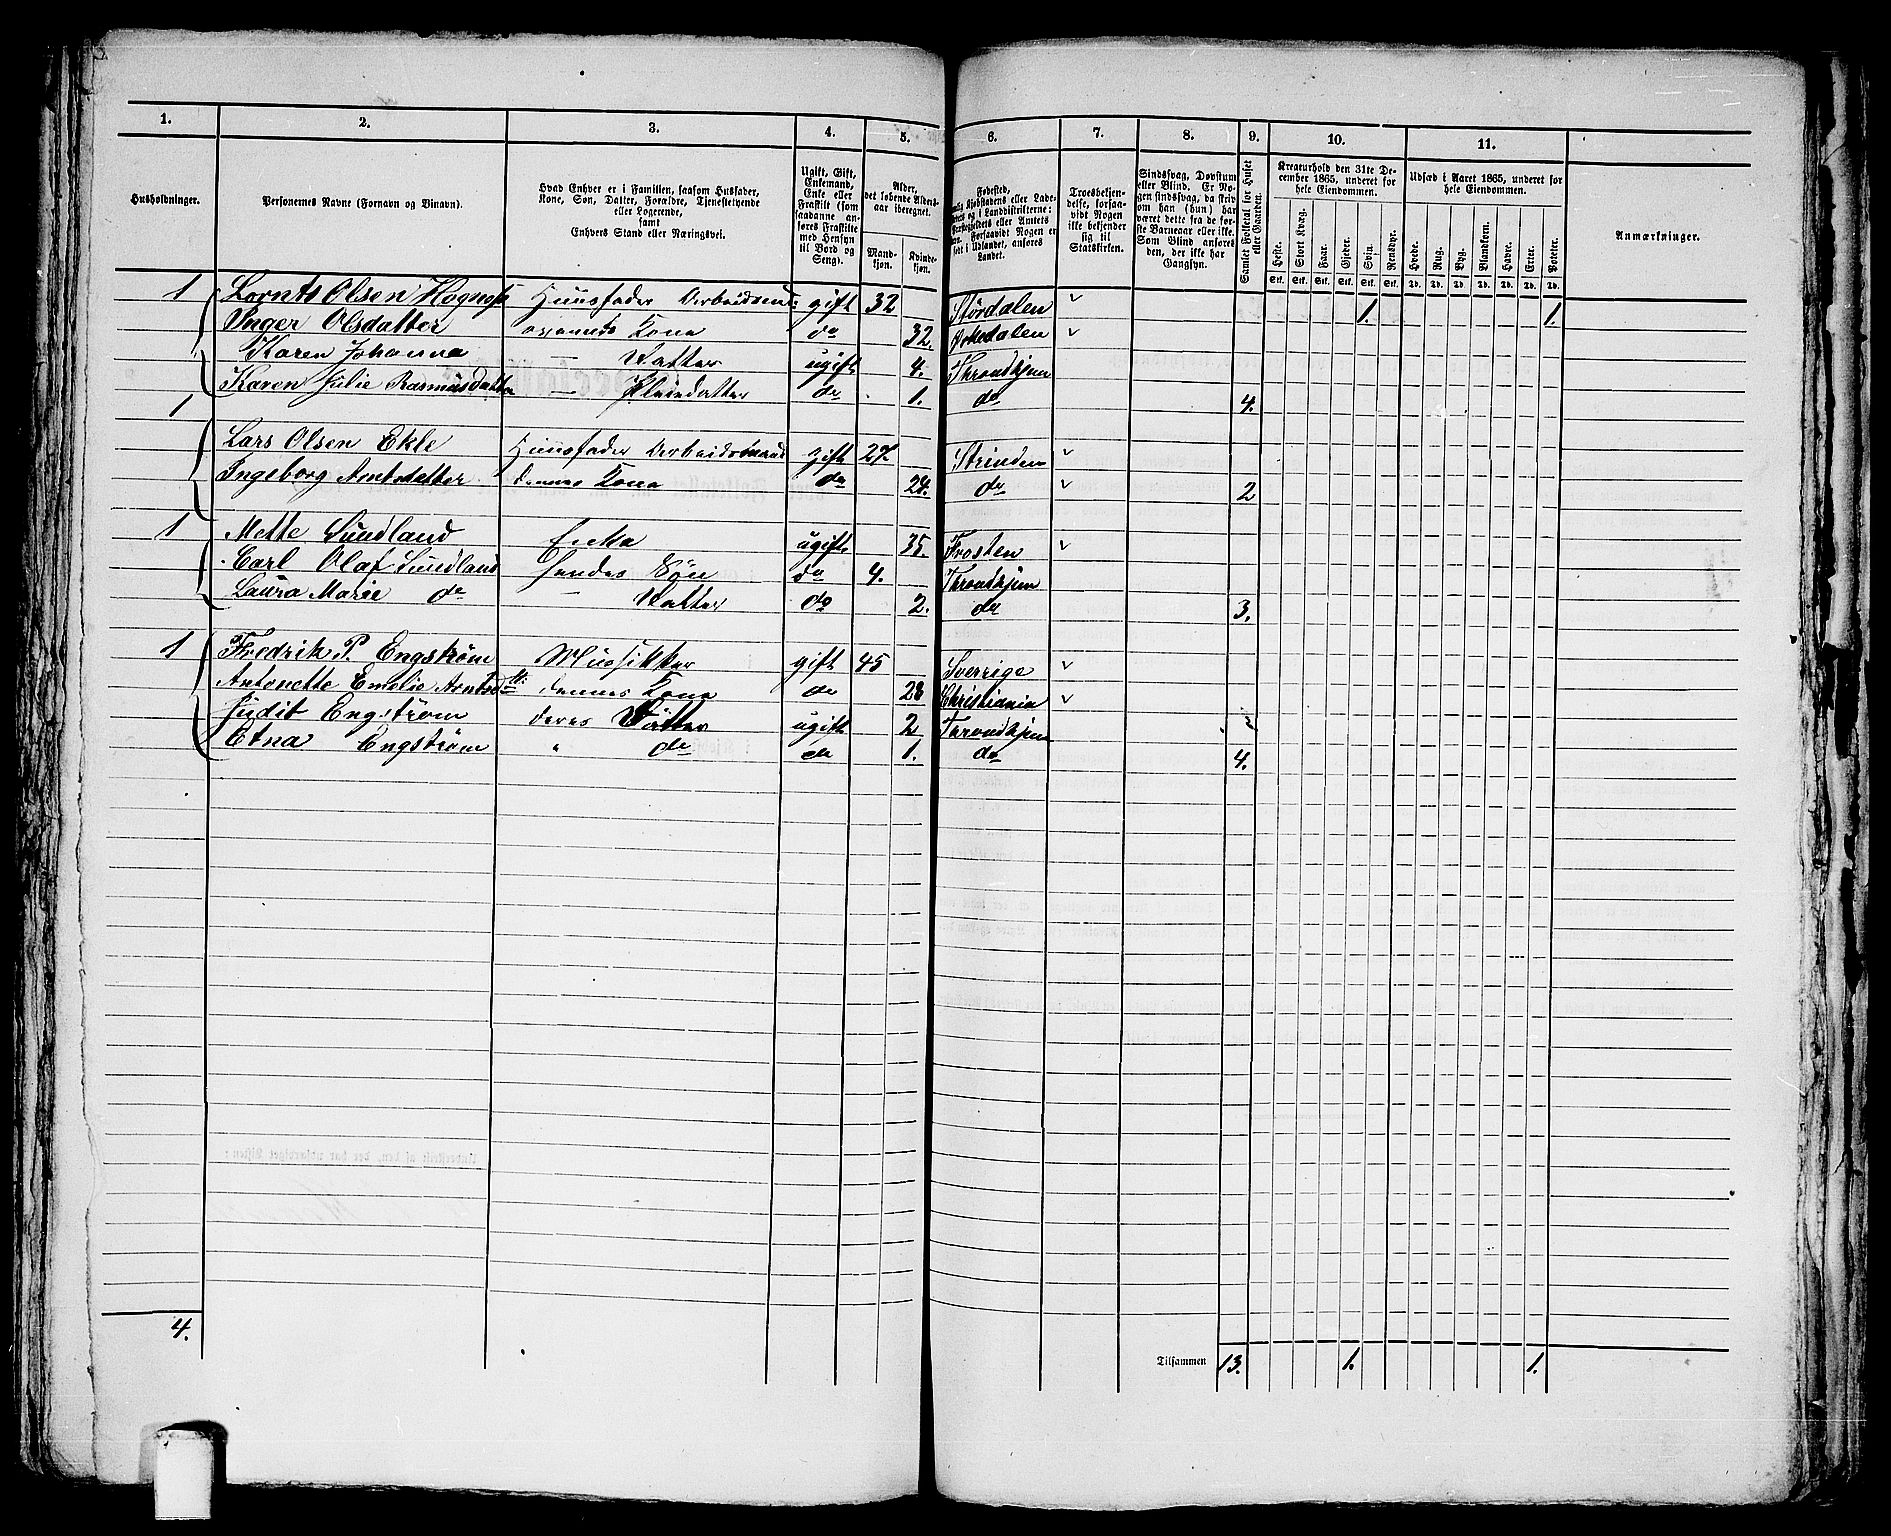 1. 2. 3. 4. 5. 6. 7. 8. 9. 10. 11.
Husholdninger.
Personernes Navne (Fornavn og Vinavn).
Hvad Enhver er i Familien, saasom Husfader,
Kone, Søn, Datter, Forældre, Tjenestetyende
eller Logerende,
samt
Enhvers Stand eller Næringsvei.
Ugift, Gift,
Enkemand,
Enke eller
Fraskilt (som
saadanne an-
føres Fraskilte
med Hensyn
til Bord og
Seng).
Alder,
det løbende Alders-
aar iberegnet.
Mand-
kjøn.
Kvinde-
kjøn.
Fødested,
Kjøbstadens eller Lade-
og i Landdistrikterne:
Præstegjeldets eller Amtets
Forsaavidt Nogen er
født i Udlandet, anføres
Landet.
Troesbekjen-
delse, forsaa-
vidt Nogen
ikke bekjender
sig til
Statskirken.
Sindssvag, Døvstum
eller Blind. Er No-
gen sindssvag, da skriv
om han (hun) har
været dette fra de før-
ste Barneaar eller ikke.
Som Blind anføres
den, der ikke har
Gangsyn.
Samlet Folketal for Huset
eller Gaarden.
Kreaturhold den 31te De-
cember 1865, underet for
hele Eiendommen.
Heste. Stort Kvæg. Faar. Gjeder. Svin. Rensdyr.
Stk. Stk. Stk. Stk. Stk. Stk.
Udsæd i Aaret 1865, underet for
hele Eiendommen.
Hvede. Rug. Byg. Blandkorn. Havre. Erter. Poteter.
Td. Td. Td. Td. Td. Td. Td.
Anmærkninger.
1 Lornts Olsen Husfader Arbeidsmd: gift 32 Størdalen 1. 1.
Inger Olsdatter Kone do 32. Ørkedalen
Karen Johanna — Datter ugift 4. Throndhjem
Karen Julie Rasmusdatter — Pleiedatter do 1. do 4.
1
Lars Olsen Ekle Husfader Arbeidsmand gift 27. Strinden
Ingeborg Arntsdatter dennes Kone do 24. do 2
1 Mette Sundland Enke ugift 35. Frosten
Carl Olaf Sundland Hendes Søn do 4. Throndhjem
Laura Marie do — Datter do 2. do 3.
1 Fredrik P. Engstrøm Mussikker gift 45 Sverrige
Antonette Emelie Arntsdtr: dennes Kone do 28 Christiania
Judit Engstrøm deres Datter ugift 2 Throndhjem
Etna Engstrøm " do do 1. do 4.
4.
Tilsammen 13. 1. 1.